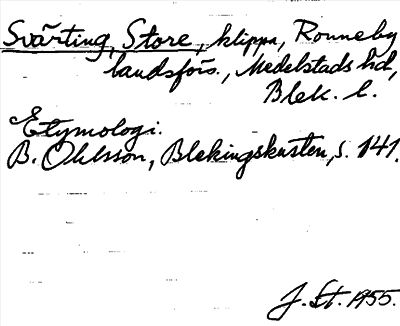 Svärting, Store, klippa, Ronneby
landsförs., Medelstads hd,
Blek. l.
Etymologi.
B. Ohlsson, Blekingskusten, s. 141.
J. St. 1955.